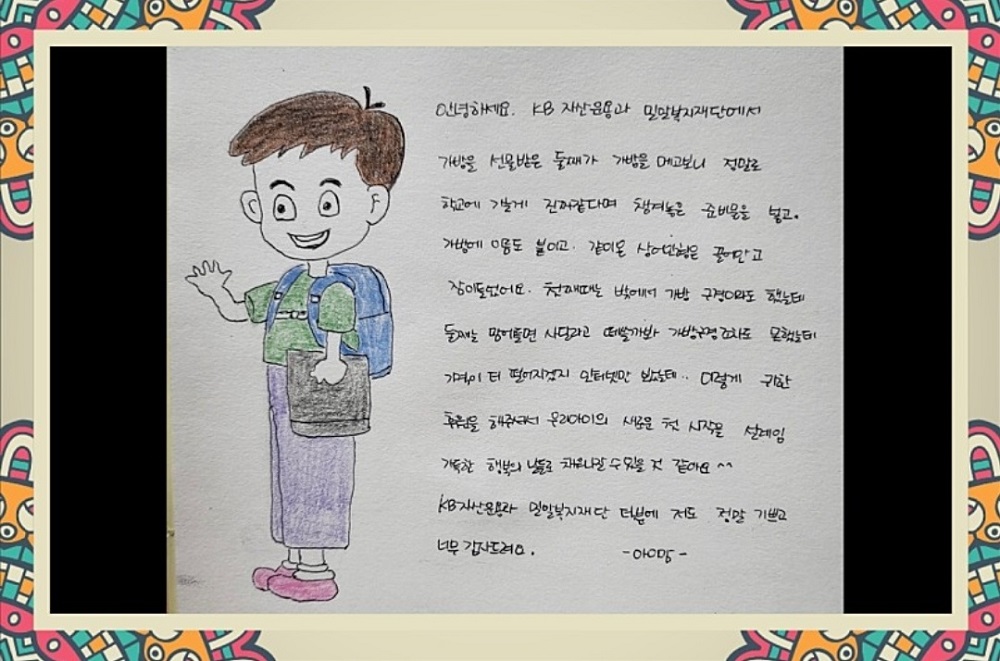 안녕하세요. KB 자산운용과 밀알복지재단에서
가방을 선물받은 둘째가 가방을 메고보니 정말로
학교에 가는게 진짜같다며 챙겨놓은 준비물을 넣고.
가방에 이름도 붙이고. 같이온 상어인형은 끌어안고
잠이들었어요. 첫째때는 밖에서 가방 구경이라도 했는데
둘째는 맘에들면 사달라고 떼쓸까봐 가방구경조차도 못했는데
가격이 더 떨어지겠지 인터넷만 봤는데.. 이렇게 귀한
후원을 해주셔서 우리아이의 새로운 첫 시작을 설레임
가득한 행복의 날들로 채워나갈 수 있을 것 같아요 ^^
KB자산운용과 밀알복지재단 덕분에 저도 정말 기쁘고
너무 감사드려요.
- 아이맘 -